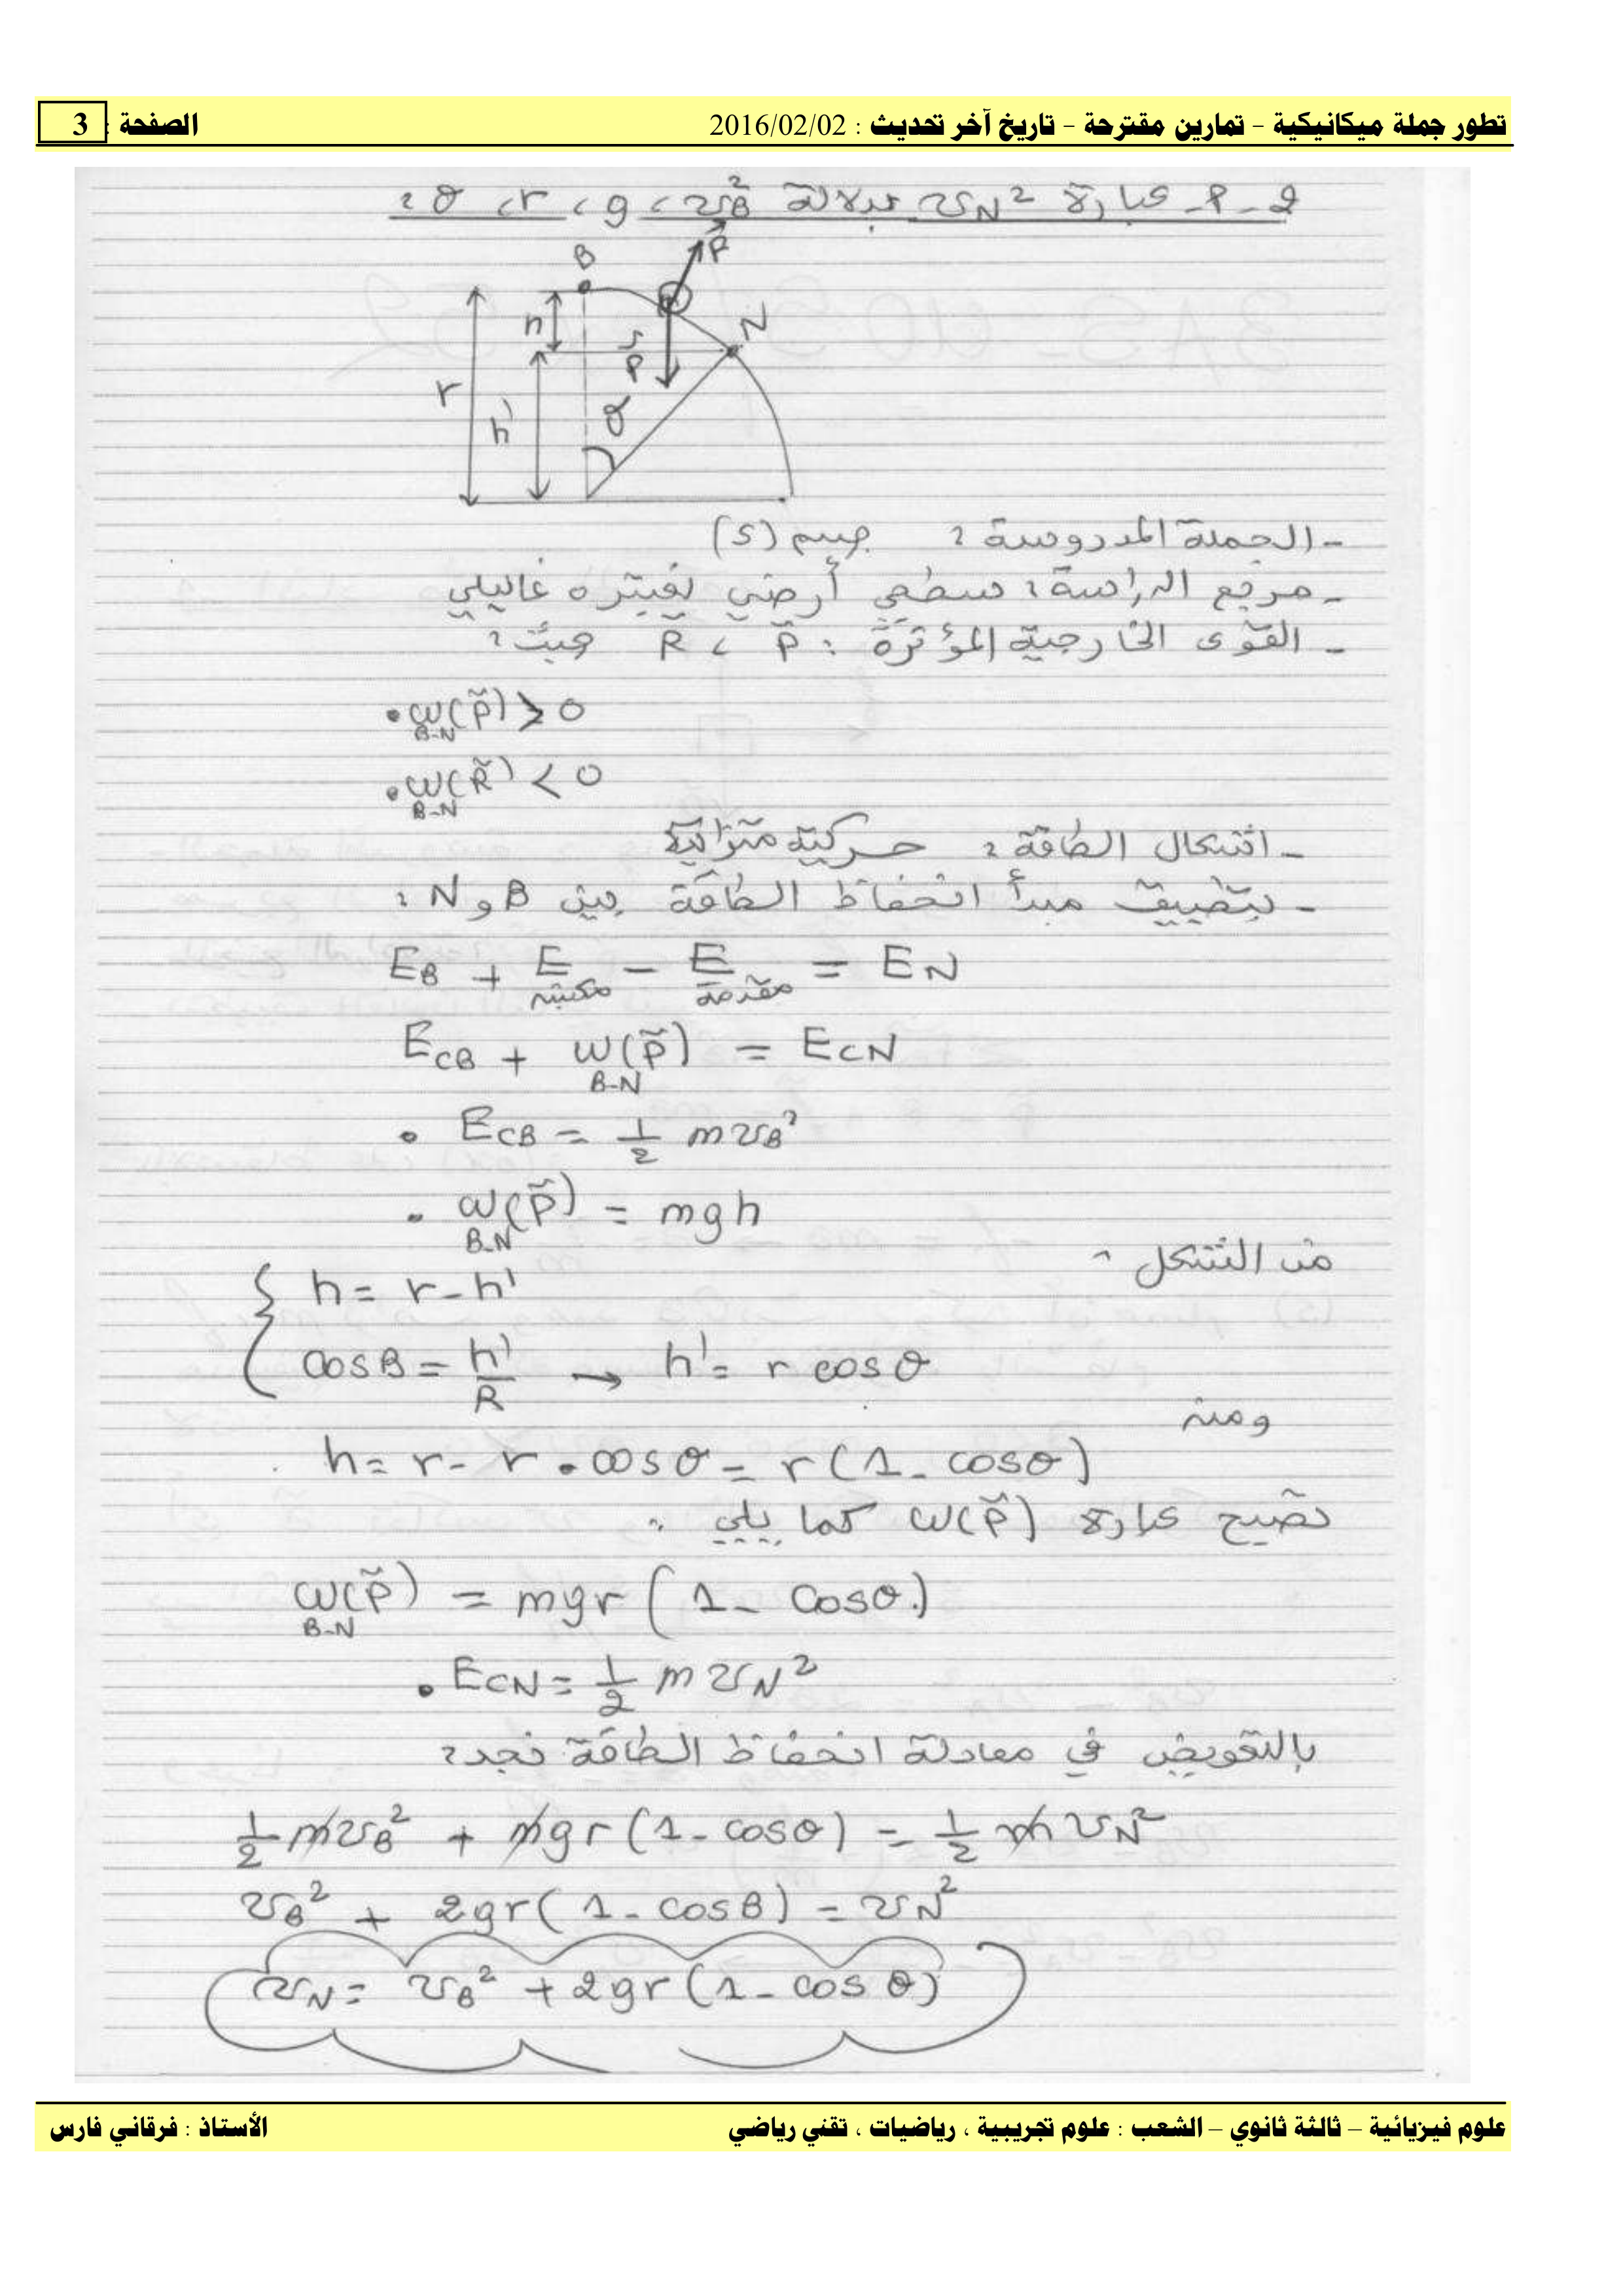 تطور جملة ميكانيكية - تمارين مقترحة - تاريخ آخر تحديث : 2016/02/02 الصفحة : 3
2-P- عبارة vN² بدلالة vB² ، g ، r ، θ :
B
R
h
P
N
r
h'
θ
- الجملة المدروسة : جسم (S)
- مرجع الدراسة : سطحي أرضي نعتبره غاليلي
- القوى الخارجية المؤثرة : P ، R حيث :
• W(P) > 0
B-N
• W(R) < 0
B-N
- اشكال الطاقة : حركية متزايدة
- بتطبيق مبدأ انحفاظ الطاقة بين B و N :
EB + E مكتسبة - E مقدمة = EN
ECB + W(P) = ECN
B-N
• ECB = 1/2 m vB²
• W(P) = mgh
B-N
من الشكل :
h = r - h'
cos B = h'/R → h' = r cos θ
ومنه
h = r - r . cos θ = r (1 - cos θ)
تصبح عبارة W(P) كما يلي :
W(P) = mgr (1 - cos θ)
B-N
• ECN = 1/2 m vN²
بالتعويض في معادلة انحفاظ الطاقة نجد :
1/2 m vB² + mgr (1 - cos θ) = 1/2 m vN²
vB² + 2gr (1 - cos θ) = vN²
vN = vB² + 2gr (1 - cos θ)
علوم فيزيائية – ثالثة ثانوي – الشعب : علوم تجريبية ، رياضيات ، تقني رياضي الأستاذ : فرقاني فارس